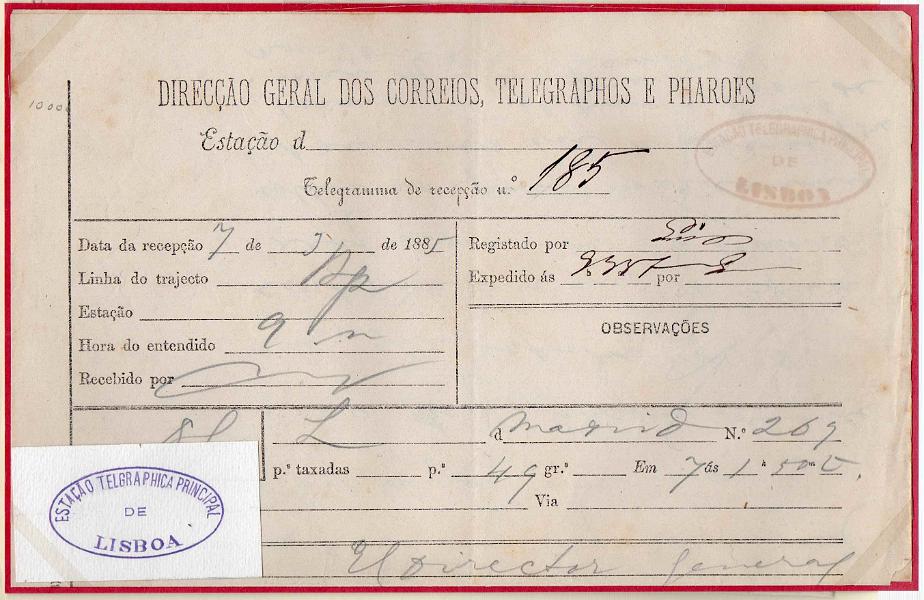 DIRECÇÃO GERAL DOS CORREIOS, TELEGRAPHOS E PHAROES
1000
Estação d
Telegramma de recepção n.º 185
ESTAÇÃO TELEGRAPHICA PRINCIPAL
DE
LISBOA
Data da recepção 7 de de 1885
Linha do trajecto
Estação
Hora do entendido 9 m
Recebido por
Registado por
Expedido ás por
OBSERVAÇÕES
L d Madrid N.º 269
p.ª taxadas p.ª 49 gr.ª Em 7 ás 1
Via
El Director General
ESTAÇÃO TELGRAPHICA PRINCIPAL
DE
LISBOA